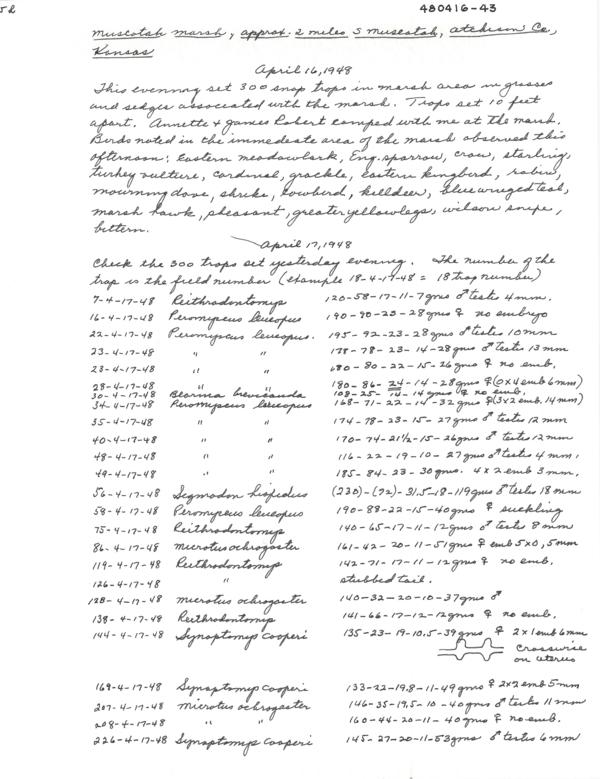 480416-43
Muscotah marsh, approx. 2 miles S Muscotah, Atchison Co,
Kansas
April 16, 1948
This evening set 300 snap traps in marsh area in grasses
and sedges associated with the marsh. Traps set 10 feet
apart. Annette & James Robert camped with me at the marsh.
Birds noted in the immediate area of the marsh observed this
afternoon: Eastern meadowlark, Eng. sparrow, crow, starling,
turkey vulture, cardinal, grackle, Eastern kingbird, robin,
mourning dove, shrike, cowbird, killdeer, blue winged teal,
marsh hawk, pheasant, greater yellowlegs, wilson snipe,
bittern.
April 17, 1948
Check the 300 traps set yesterday evening. The number of the
trap is the field number (example 18-4-17-48 = 18 trap number)
7-4-17-48 Reithrodontomys 120-58-17-11-7gms ♂ testis 4mm.
16-4-17-48 Peromyscus leucopus 190-90-23-28gms ♀ no embryo
22-4-17-48 Peromyscus leucopus. 195-92-23-28gms ♂ testis 10mm
23-4-17-48 " " 178-78-23-14-28gms ♂ testis 13mm
23-4-17-48 " " 180-80-22-15-26gms ♀ no emb.
28-4-17-48 " 180-86-24-14-28gms ♀ (0x4 emb 6mm)
30-4-17-48 Blarina brevicauda 108-25-14-14gms ♀ no emb.
34-4-17-48 Peromyscus leucopus 168-71-22-14-32gms ♀ (3x2 emb. 14mm)
35-4-17-48 " " 174-78-23-15-27gms ♂ testis 12mm
40-4-17-48 " " 170-74-21½-15-26gms ♂ testis 12mm
48-4-17-48 " " 116-22-19-10-27gms ♂ testis 4mm.
49-4-17-48 " " 185-84-23-30gms. 4x2 emb 3mm.
56-4-17-48 Sigmodon hispidus (230)-(92)-31.5-18-119gms ♂ testes 18mm
59-4-17-48 Peromyscus leucopus 190-88-22-15-40gms ♀ suckling
75-4-17-48 Reithrodontomys 140-65-17-11-12gms ♂ testes 8mm
86-4-17-48 Microtus ochrogaster 161-42-20-11-51gms ♀ emb 5x0, 5mm
119-4-17-48 Reithrodontomys 142-71-17-11-12gms ♀ no emb.
126-4-17-48 " stubbed tail.
128-4-17-48 Microtus ochrogaster 140-32-20-10-37gms ♂
138-4-17-48 Reithrodontomys 141-66-17-12-12gms ♀ no emb.
144-4-17-48 Synaptomys cooperi 135-23-19-10.5-39gms ♀ 2x1 emb 6mm
crosswise
on uterus
169-4-17-48 Synaptomys cooperi 133-22-19.8-11-49gms ♀ 2x2 emb 5mm
207-4-17-48 Microtus ochrogaster 146-35-19.5-10-40gms ♂ testes 11mm
208-4-17-48 " " 160-44-20-11-40gms ♀ no emb.
226-4-17-48 Synaptomys cooperi 145-27-20-11-53gms ♂ testes 6mm